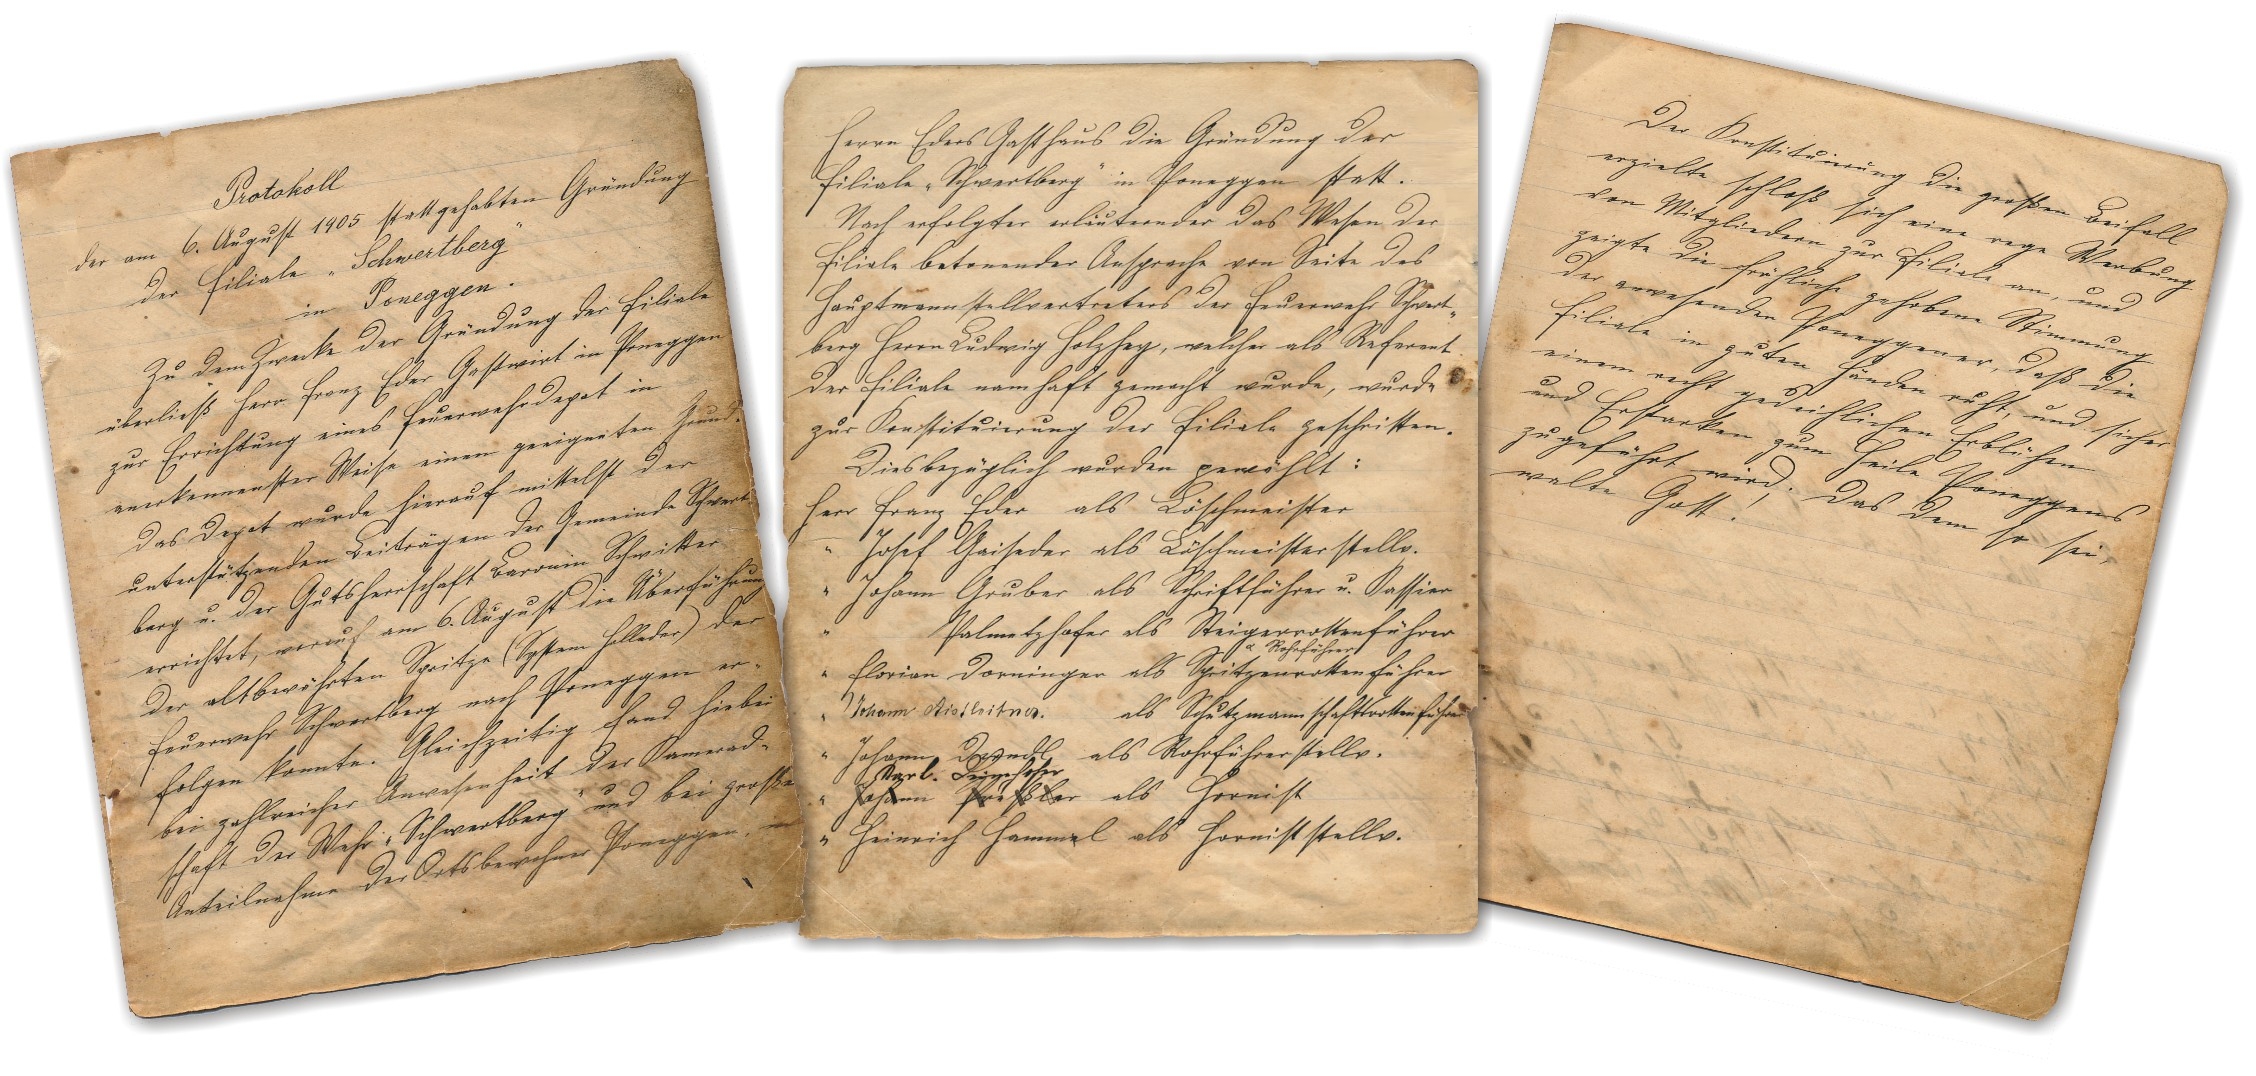 Protokoll
der am 6. August 1905 stattgehabten Gründung
der Filiale „Schwertberg“
in Poneggen.
Zu dem Zwecke der Gründung der Filiale
überließ Herr Franz Eder Gastwirt in Poneggen
zur Errichtung eines Feuerwehrdepot in
anerkennenster Weise einen geeigneten Grund.
Das Depot wurde hierauf mittelst der
unterstützenden Beiträgen der Gemeinde Schwert
berg u. der Gutsherrschaft Baronin Schwitter
errichtet, worauf am 6. August die Überführung
der altbewährten Spritze (System Helleder) der
Feuerwehr Schwertberg nach Poneggen er-
folgen konnte. Gleichzeitig fand hiebei
bei zahlreicher Anwesenheit der Kamerad-
schaft der Wehr „Schwertberg“ und bei große
Anteilnahme der Ortsbewohner Poneggen,
Herrn Eders Gasthaus die Gründung der
Filiale „Schwertberg“ in Poneggen statt.
Nach erfolgter erläuternder das Wesen der
Filiale betonender Ansprache von Seite des
Hauptmannstellvertreters der Feuerwehr Schwert-
berg Herrn Ludwig Holzhey, welcher als Referent
der Filiale namhaft gemacht wurde, wurde
zur Konstituierung der Filiale geschritten.
Diesbezüglich wurden gewählt:
Herr Franz Eder als Löschmeister
„ Josef Gaiseder als Löschmeisterstellv.
„ Johann Gruber als Schriftführer u. Kassier
„ Palmetzhofer als Steigerrottenführer
u. Rohrführer
„ Florian Dorninger als Spritzenrottenführer
„ Johann Aistleitner. als Schutzmannschaftsrottenführer
„ Johann als Rohrführerstellv.
Karl.
„ Johann als Hornist
„ Heinrich Hammel als Horniststellv.
Der Konstituierung die großen Beifall
erzielte schloß sich eine rege Werbung
von Mitgliedern zur Filiale an, und
zeigte die fröhliche gehobene Stimmung
der anwesenden Poneggener, daß die
Filiale in guten Händen ruht, und sicher
einem recht gedeihlichen Erblühen
und Erstarken zum Heile Poneggens
zugeführt wird. Das dem so sei,
walte Gott!